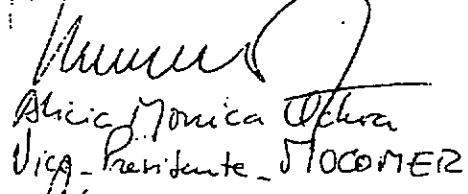 Alicia Monica Ochoa
Vice-Presidente_MOCOMER